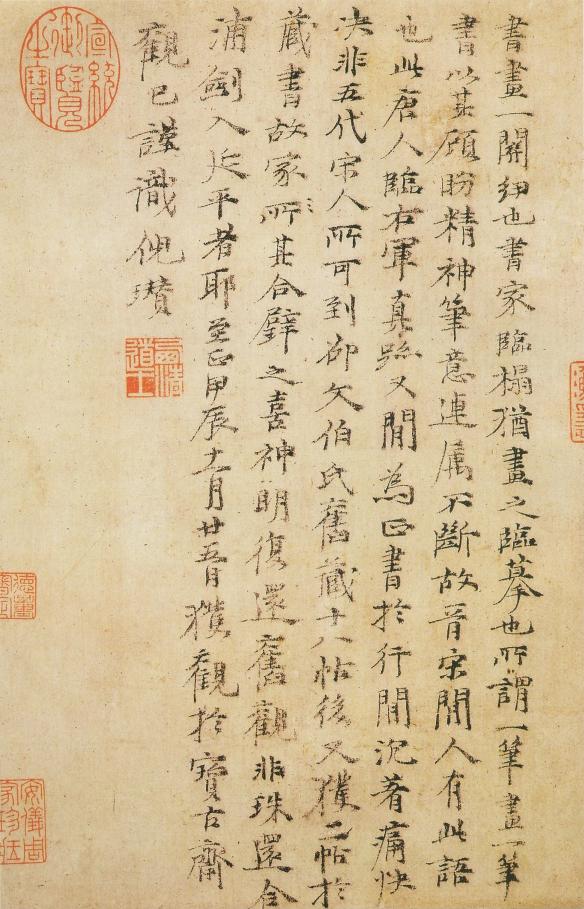 書畫一關紐也書家臨榻猶畫之臨摹也所謂一筆畫一筆
書以其顧盼精神筆意連属不斷故晉宋間人有此語
也此唐人臨右軍真跡又間為正書於行間沉著痛快
决非五代宋人所可到卻文伯氏舊藏十八帖後又獲二帖於
藏書故家所其合璧之喜神明復還舊觀非珠還合
浦劍入延平者耶至正甲辰十一月廿五日獲觀於寶古齋
觀已謹識倪瓚
宣統御覽之寶